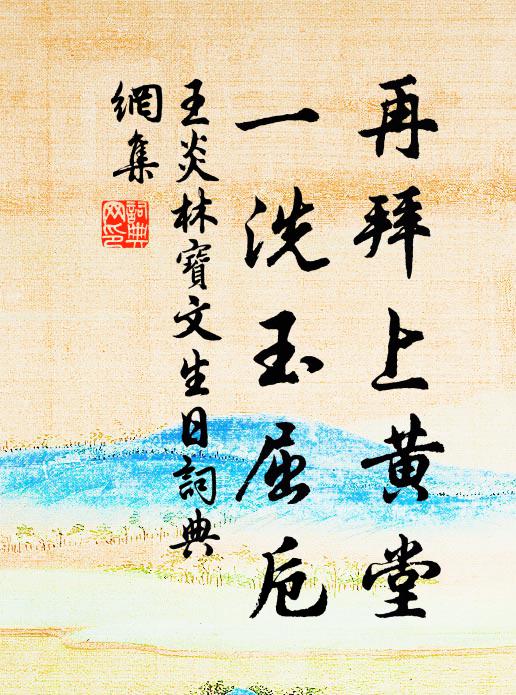 再拜上黄堂
一洗玉屈卮
王炎林寶文生日詞典
網集
詞典
网印